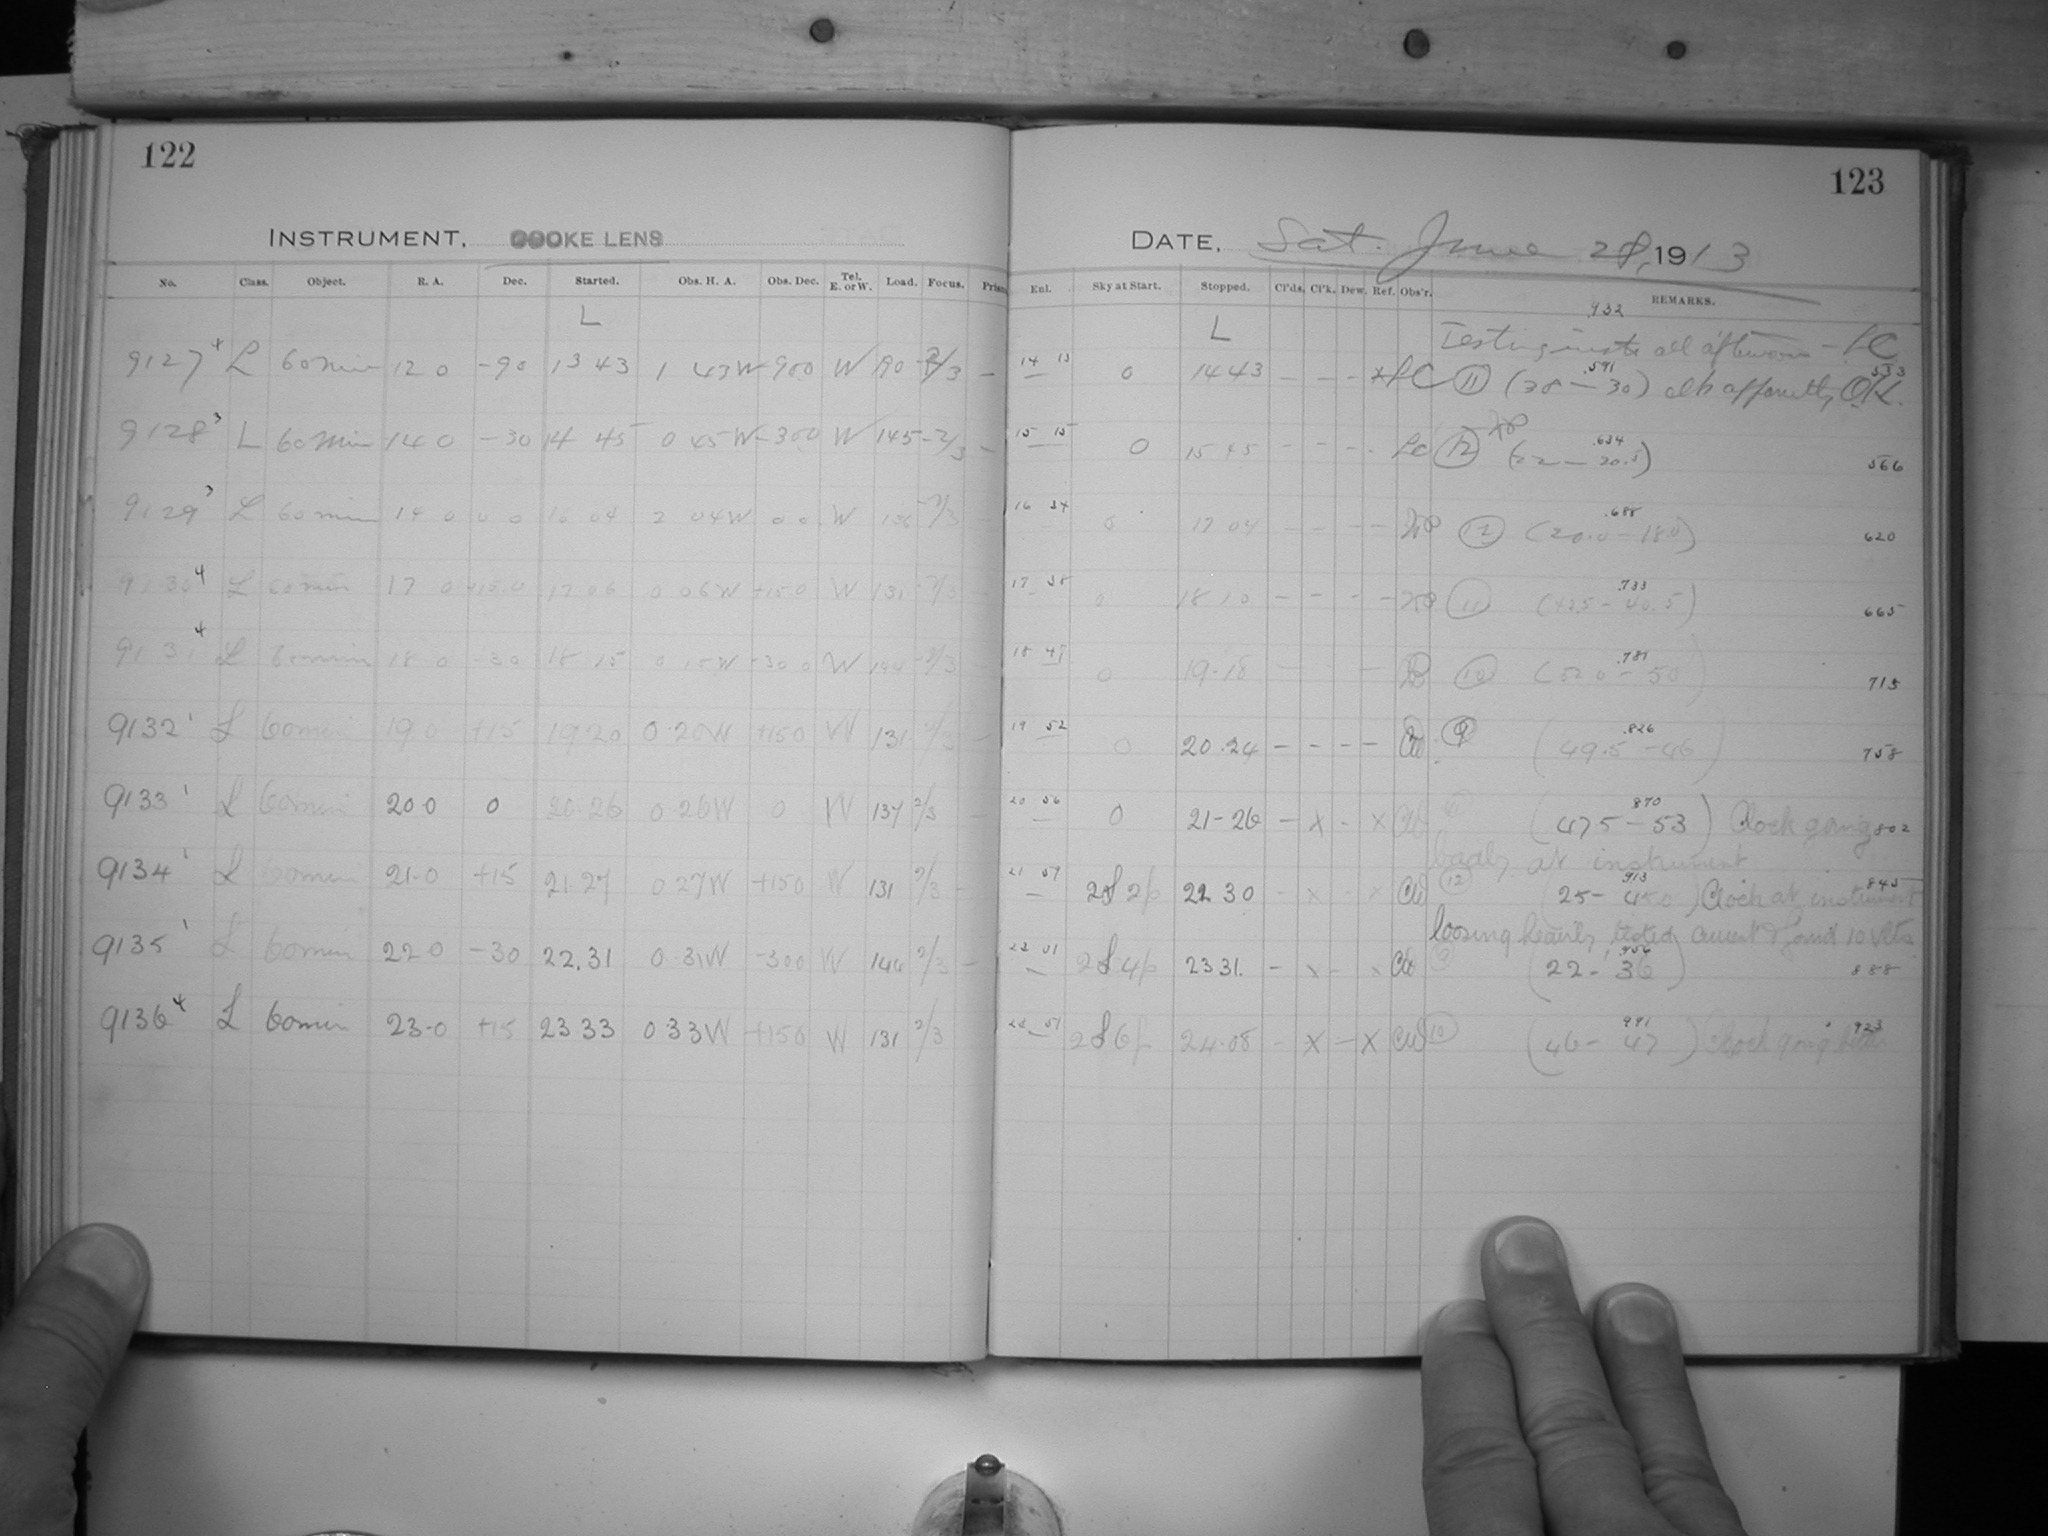 122
INSTRUMENT, COOKE LENS
No. Class. Object. R. A. Dec. Started. Obs. H. A. Obs. Dec. Tel. E. or W. Load. Focus. Prism
L
9127 4 L 60 min 12 0 -90 13 43 1 43 W -900 W 190 -2/3 -
9128 3 L 60 min 14 0 -30 14 45 0 45 W -300 W 145 -2/3 -
9129 3 L 60 min 14 0 0 0 16 04 2 04 W 0 0 W -2/3
9130 4 L 60 min 17 0 +15 0 17 08 0 06 W +150 W 131 -2/3
9131 4 L 60 min 18 0 -30 18 15 0 15 W -300 W 144 -2/3
9132 1 L 60 min 19 0 +15 19 20 0 20 W +150 W 131 2/3 -
9133 1 L 60 min 20 0 0 20 26 0 26 W 0 W 137 2/3 -
9134 1 L 60 min 21 0 +15 21 27 0 27 W +150 W 131 2/3 -
9135 1 L 60 min 22 0 -30 22.31 0 31 W -300 W 144 2/3 -
9136 4 L 60 min 23-0 +15 23 33 0 33 W +150 W 131 2/3
123
DATE, Sat. June 28, 1913
Enl. Sky at Start. Stopped. Cl'ds. Cl'k. Dew. Ref. Obs'r. REMARKS.
.932
L Testing insts all afternoon - LC
14 13 0 14 43 - - - x LC 11 (38 - 30) .591 all apparently OK. 533
15 15 0 15 45 - - - - LC 12 (22 - 20.5) .634 566
16 34 0 17 04 - - - - 12 (20.0 - 18.0) .688 620
17 38 0 18 10 - - - - 11 (42.5 - 40.5) .733 665
18 47 0 19.18 - - - - 10 (52.0 - 50) .781 715
19 52 0 20.24 - - - - CW 9 (49.5 - 46) .826 758
20 56 0 21-26 - x - x CW (47.5 - 53) 870 Clock going 802
badly at instrument
21 57 2S 2p 22 30 - x - x CW 12 (25 - 45.0) 913 Clock at instrument 845
loosing heavily tested current & found 10 Vlts.
23 01 2S 4p 23 31. - x - x CW (22 - 36) 956 888
23 51 2S 6p 24.08 - x - x CW 10 (46 - 47) 991 Clock going 923